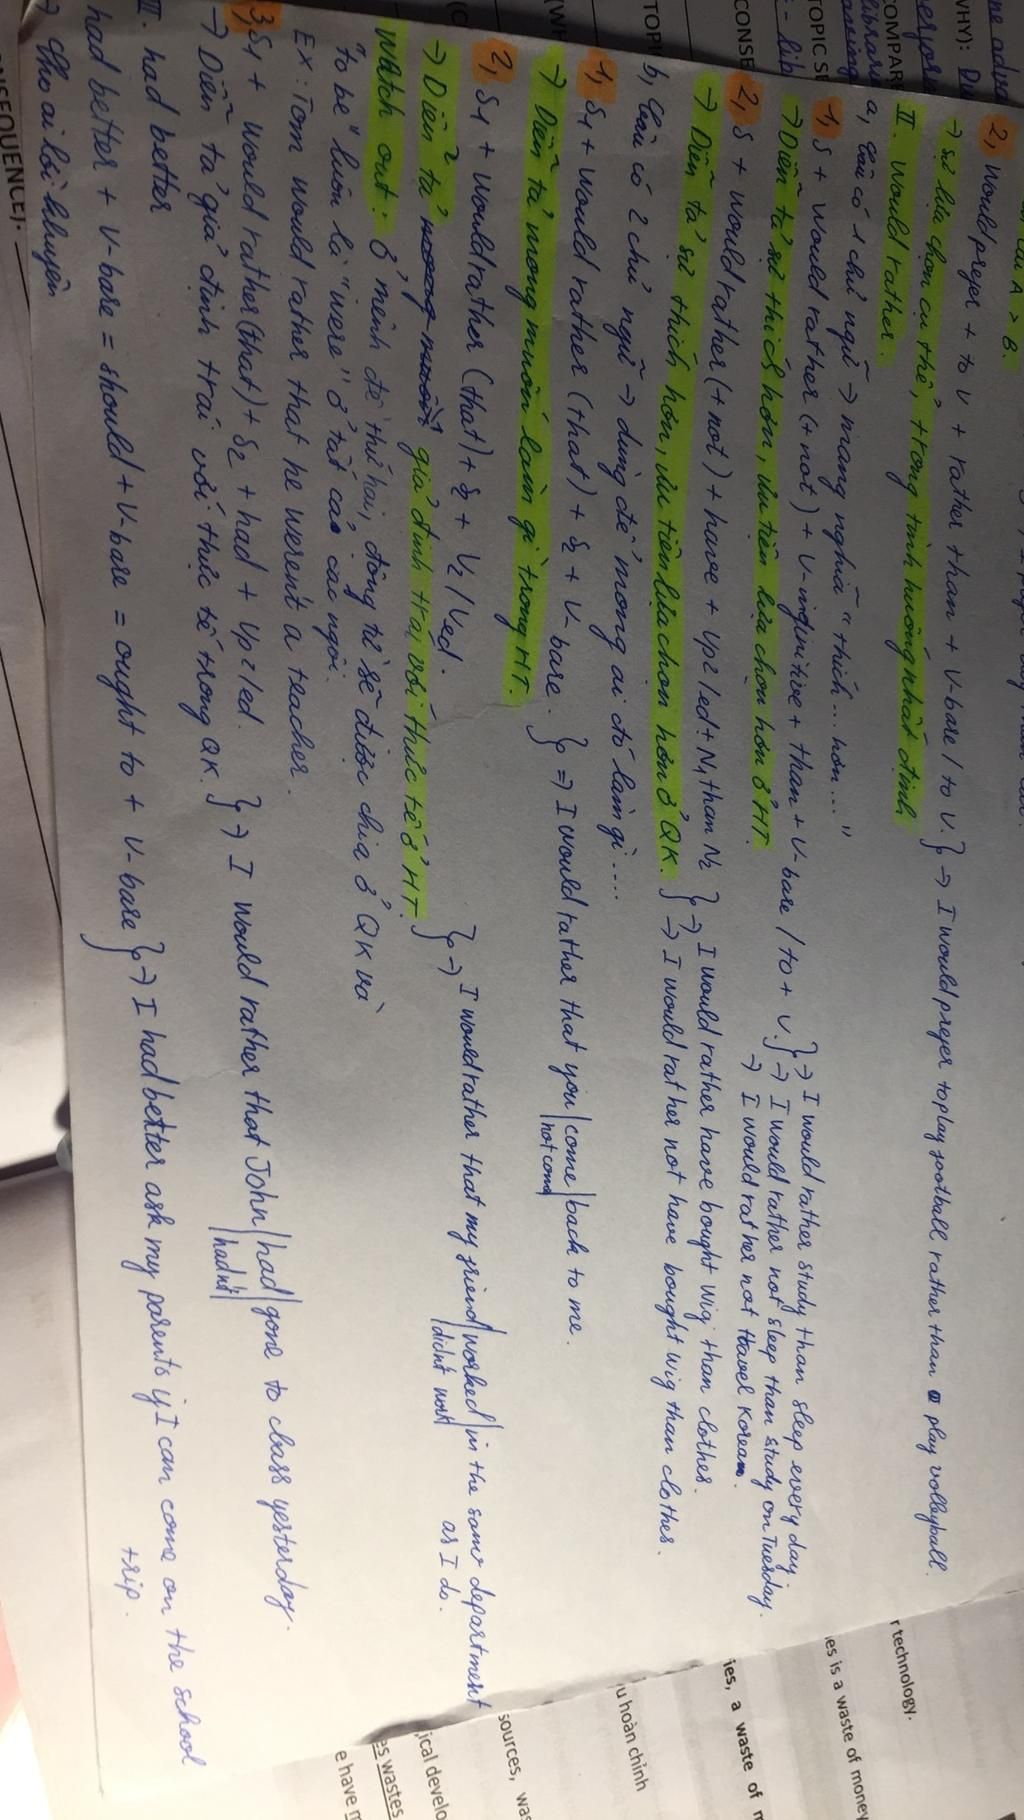 2, Would prefer + to V + rather than + V-bare / to V. } → I would prefer to play football rather than play volleyball.
→ sự lựa chọn cụ thể, trong tình huống nhất định
II. Would rather.
a, Câu có 1 chủ ngữ → mang nghĩa "thích ... hơn ..."
1, S + would rather (+ not) + V-infinitive + than + V-bare / to + V. } → I would rather study than sleep every day.
→ I would rather not sleep than study on Tuesday.
→ Diễn tả sự thích hơn, ưu tiên lựa chọn hơn ở HT.
→ I would rather not travel Korea.
2, S + would rather (+ not) + have + Vp2/ed + N1 than N2 } → I would rather have bought wig than clothes.
→ Diễn tả sự thích hơn, ưu tiên lựa chọn hơn ở QK. } → I would rather not have bought wig than clothes.
b, Câu có 2 chủ ngữ → dùng để mong ai đó làm gì ....
1, S1 + would rather (that) + S2 + V-bare. } => I would rather that you / come / back to me.
not come
→ Diễn tả mong muốn làm gì trong HT.
2, S1 + would rather (that) + S2 + V2/Ved. } → I would rather that my friend / worked / in the same department
didn't work
as I do.
→ Diễn tả giả định trái với thực tế ở HT.
Watch out: ở mệnh đề thứ hai, động từ sẽ được chia ở QK và
"to be" luôn là "were" ở tất cả các ngôi.
Ex: Tom would rather that he weren't a teacher.
3, S1 + would rather (that) + S2 + had + Vp2/ed } → I would rather that John / had / gone to class yesterday.
hadn't
→ Diễn tả giả định trái với thực tế trong QK.
III. had better
had better + V-bare = should + V-bare = ought to + V-bare } → I had better ask my parents if I can come on the school
trip.
→ Cho ai lời khuyên
WHY):
COMPARE
TOPIC SE
CONSE
TOPI
(WH
SEQUENCE).
r technology.
ies is a waste of money
ies, a waste of
u hoàn chỉnh
sources, was
ical develo
es wastes
e have